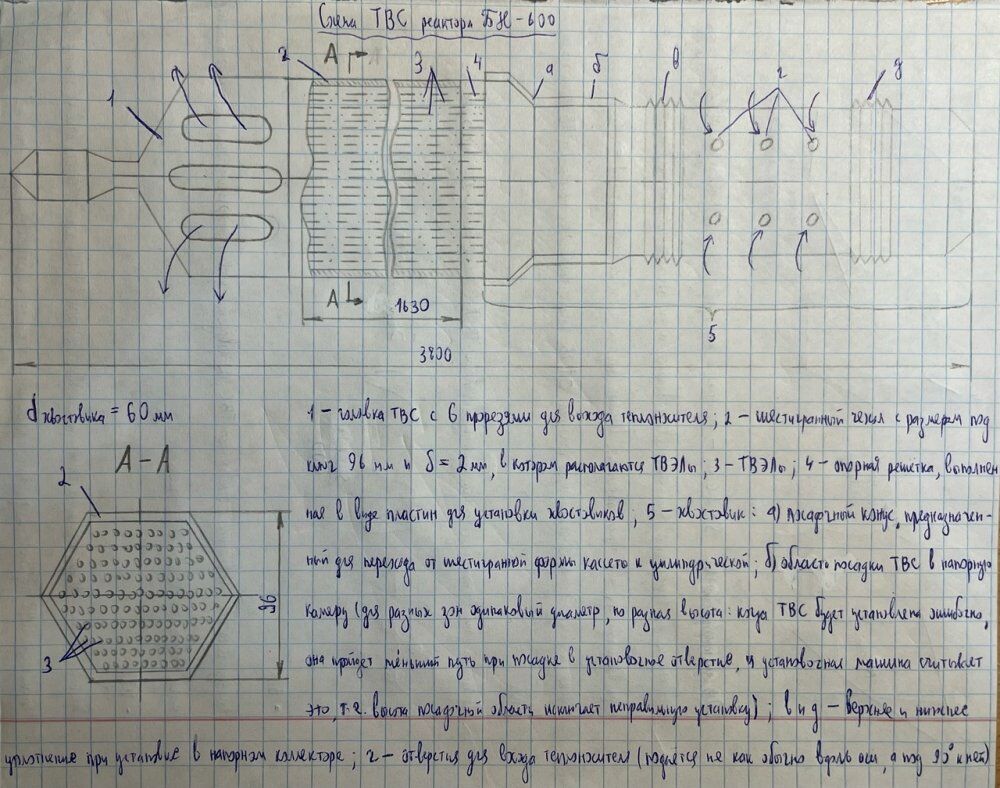 Схема ТВС реактора БН-600
А
1
2
3
4
а
б
в
г
д
А
1630
5
3800
d хвостовика = 60 мм
1 – головка ТВС с 6 прорезями для выхода теплоносителя; 2 – шестигранный чехол с размером под
ключ 96 мм и δ = 2 мм, в котором располагаются ТВЭЛы; 3 – ТВЭЛы; 4 – опорная решетка, выполнен
ная в виде пластин для установки хвостовиков; 5 – хвостовик: а) посадочный конус, предназначен-
ный для перехода от шестигранной формы кассеты к цилиндрической; б) область посадки ТВС в напорную
камеру (для разных зон одинаковый диаметр, но разная высота: когда ТВС будет установлена ошибочно,
она пройдет меньший путь при посадке в установочное отверстие, и установочная машина считывает
это, т.е. высота посадочной области исключает неправильную установку); в и д – верхнее и нижнее
уплотнение при установке в напорном коллекторе; г – отверстия для входа теплоносителя (подаётся не как обычно вдоль оси, а под 90° к ней)
А–А
2
96
3